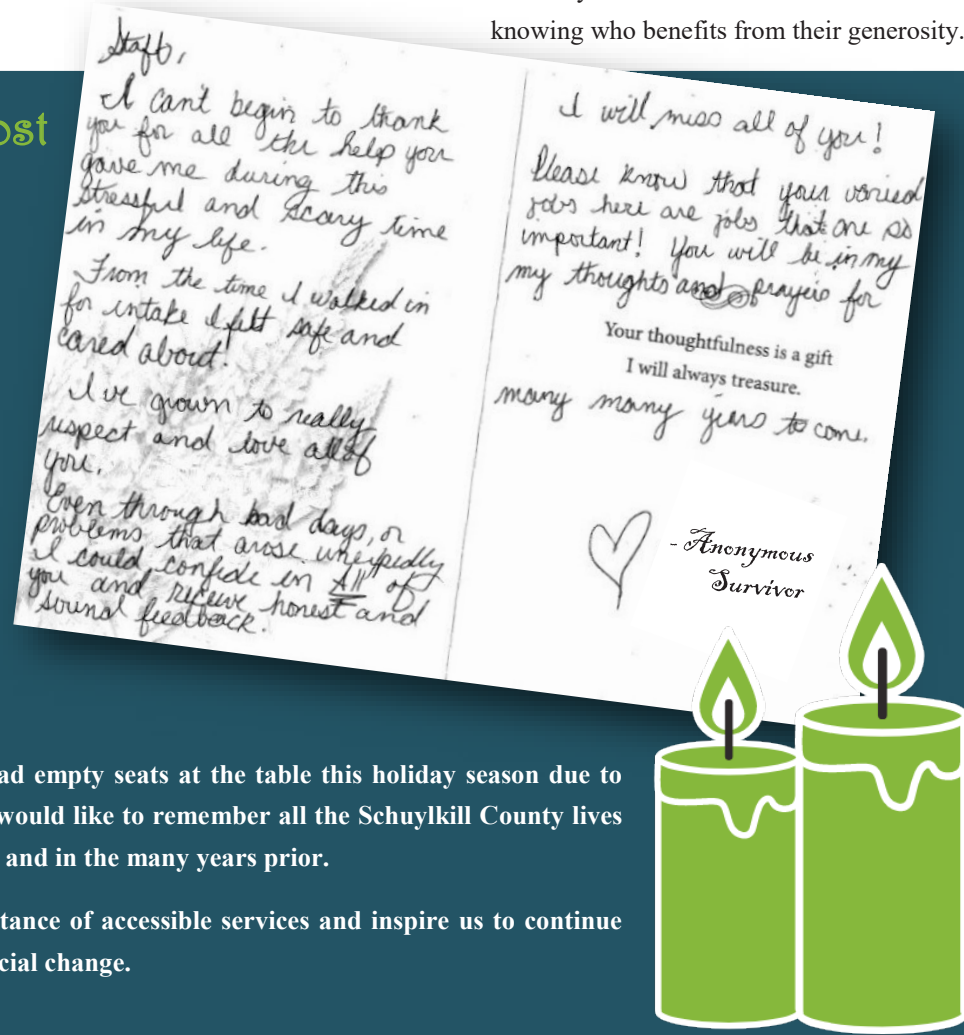 knowing who benefits from their generosity.
ost
Staff,
I can't begin to thank
you for all the help you
gave me during this
stressful and scary time
in my life.
From the time I walked in
for intake I felt safe and
cared about!
I've grown to really
respect and love all of
you.
Even through bad days, or
problems that arose unexpedly
I could confide in All of
you and receive honest and
sound feedback.
I will miss all of you!
Please know that your varied
jobs here are jobs that are so
important! You will be in my
my thoughts and prayers for
Your thoughtfulness is a gift
I will always treasure.
many many years to come.
- Anonymous
Survivor
ad empty seats at the table this holiday season due to
would like to remember all the Schuylkill County lives
and in the many years prior.
tance of accessible services and inspire us to continue
cial change.